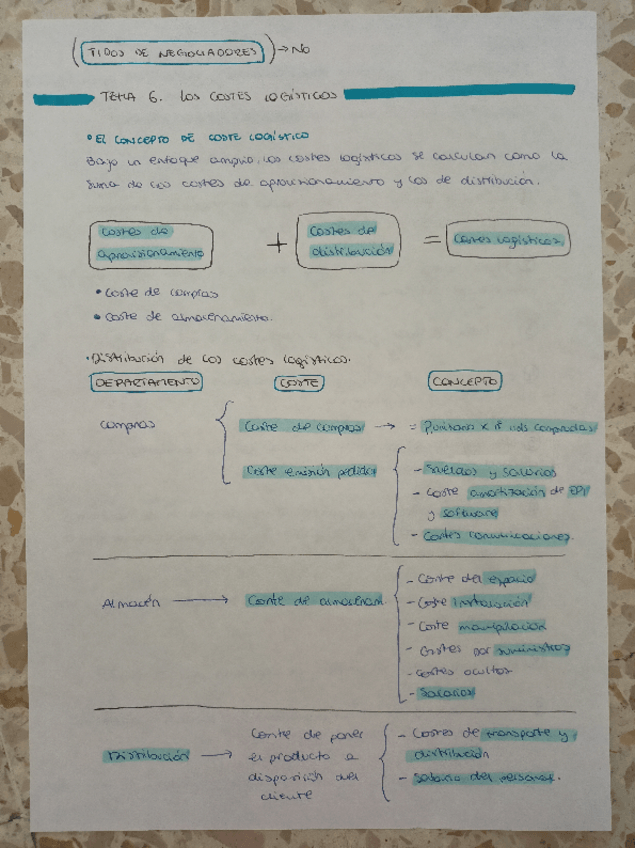 (TIPOS DE NEGOCIADORES) → NO
TEMA 6. LOS COSTES LOGÍSTICOS
• EL CONCEPTO DE COSTE LOGÍSTICO
Bajo un enfoque amplio, los costes logísticos se calculan como la
suma de los costes de aprovisionamiento y los de distribución.
Costes de aprovisionamiento + Costes de distribución = Costes logísticos
• Coste de compras
• Coste de almacenamiento.
• Distribución de los costes logísticos.
DEPARTAMENTO COSTE CONCEPTO
Compras
Coste de compras → = P.unitario x nº uds compradas
Coste emisión pedidos
- Sueldos y salarios
- Coste amortización de EPI
y software
- Costes comunicaciones.
Almacén → Coste de almacenam.
- Coste del espacio
- Coste instalación
- Coste manipulación
- Gastos por suministros
- Costes ocultos
- Salarios
Distribución → Coste de poner
el producto a
disposición del
cliente
- Costes de transporte y
distribución
- Salario del personal.